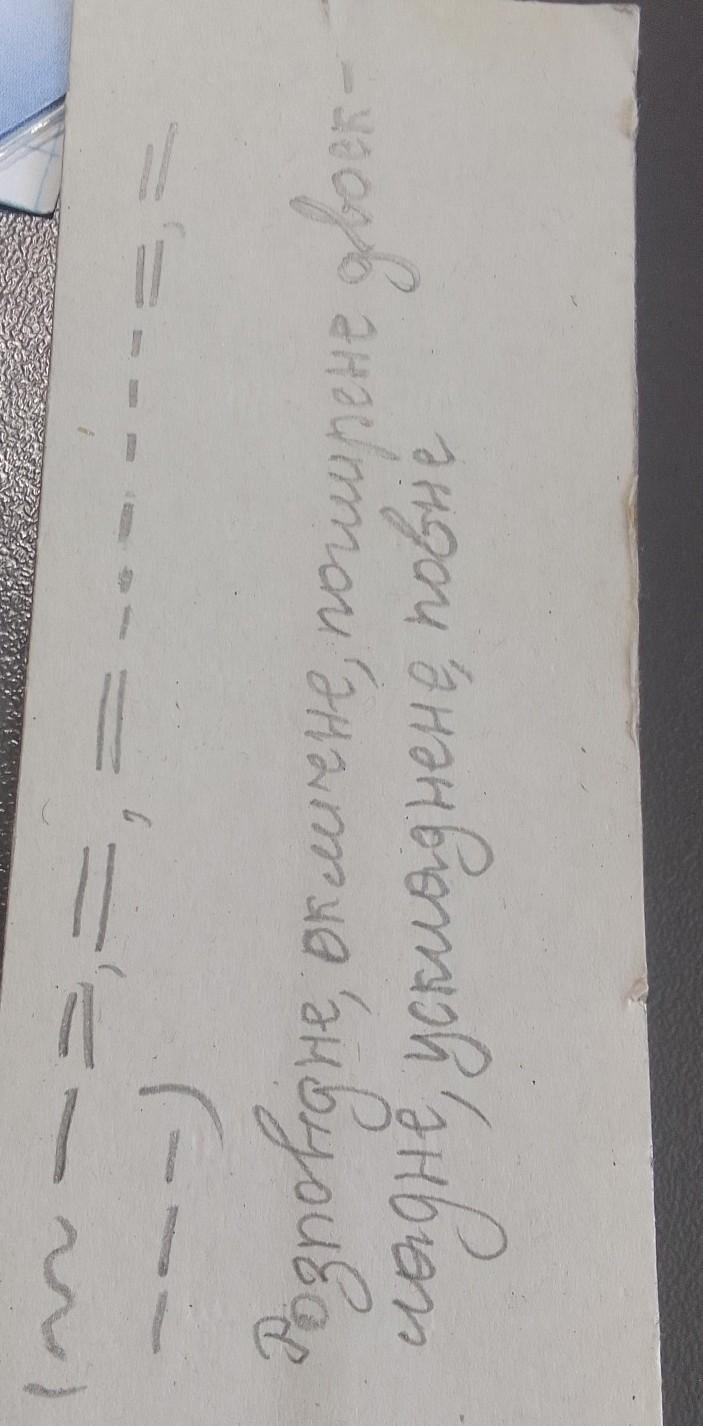 Розповідне, окличне, поширене двоск-
ладне, ускладнене, повне